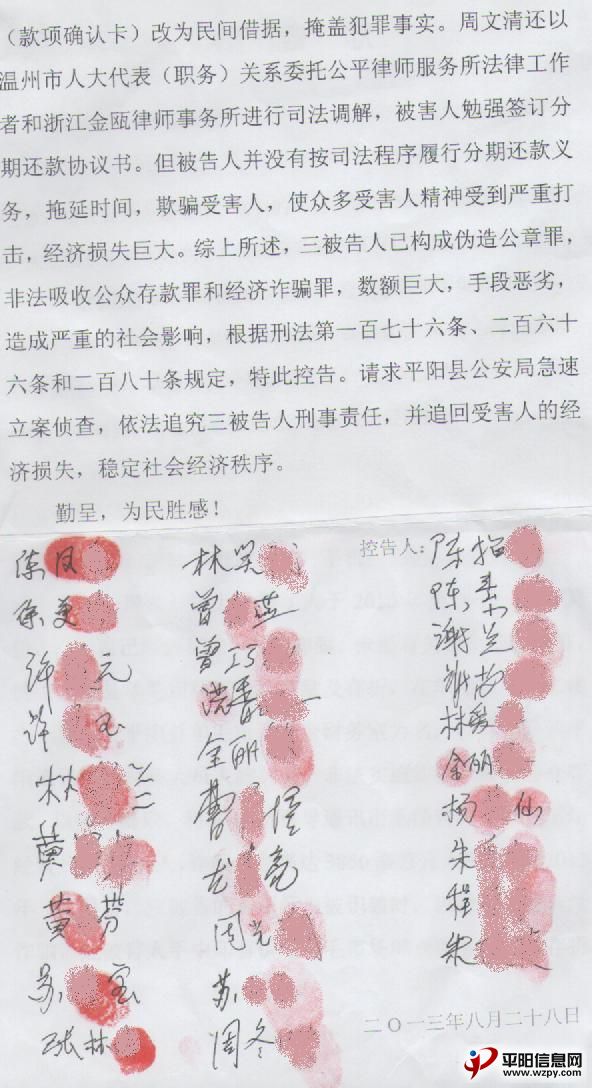 （款项确认卡）改为民间借据，掩盖犯罪事实。周文清还以
温州市人大代表（职务）关系委托公平律师服务所法律工作
者和浙江金瓯律师事务所进行司法调解，被害人勉强签订分
期还款协议书。但被告人并没有按司法程序履行分期还款义
务，拖延时间，欺骗受害人，使众多受害人精神受到严重打
击，经济损失巨大。综上所述，三被告人已构成伪造公章罪，
非法吸收公众存款罪和经济诈骗罪，数额巨大，手段恶劣，
造成严重的社会影响，根据刑法第一百七十六条、二百六十
六条和二百八十条规定，特此控告。请求平阳县公安局急速
立案侦查，依法追究三被告人刑事责任，并追回受害人的经
济损失，稳定社会经济秩序。
勤呈，为民胜感！
控告人：陈招
陈 柔
谢兰
林爱
金丽
杨 仙
朱
程
朱
陈凤
许 元
许 玉
林 兰
黄
黄 芬
苏 宝
张林
林笑
曾 燕
曾巧
金丽
曹
龙 亮
周光
苏
周冬
二〇一三年八月二十八日
平阳信息网
www.wzpy.com